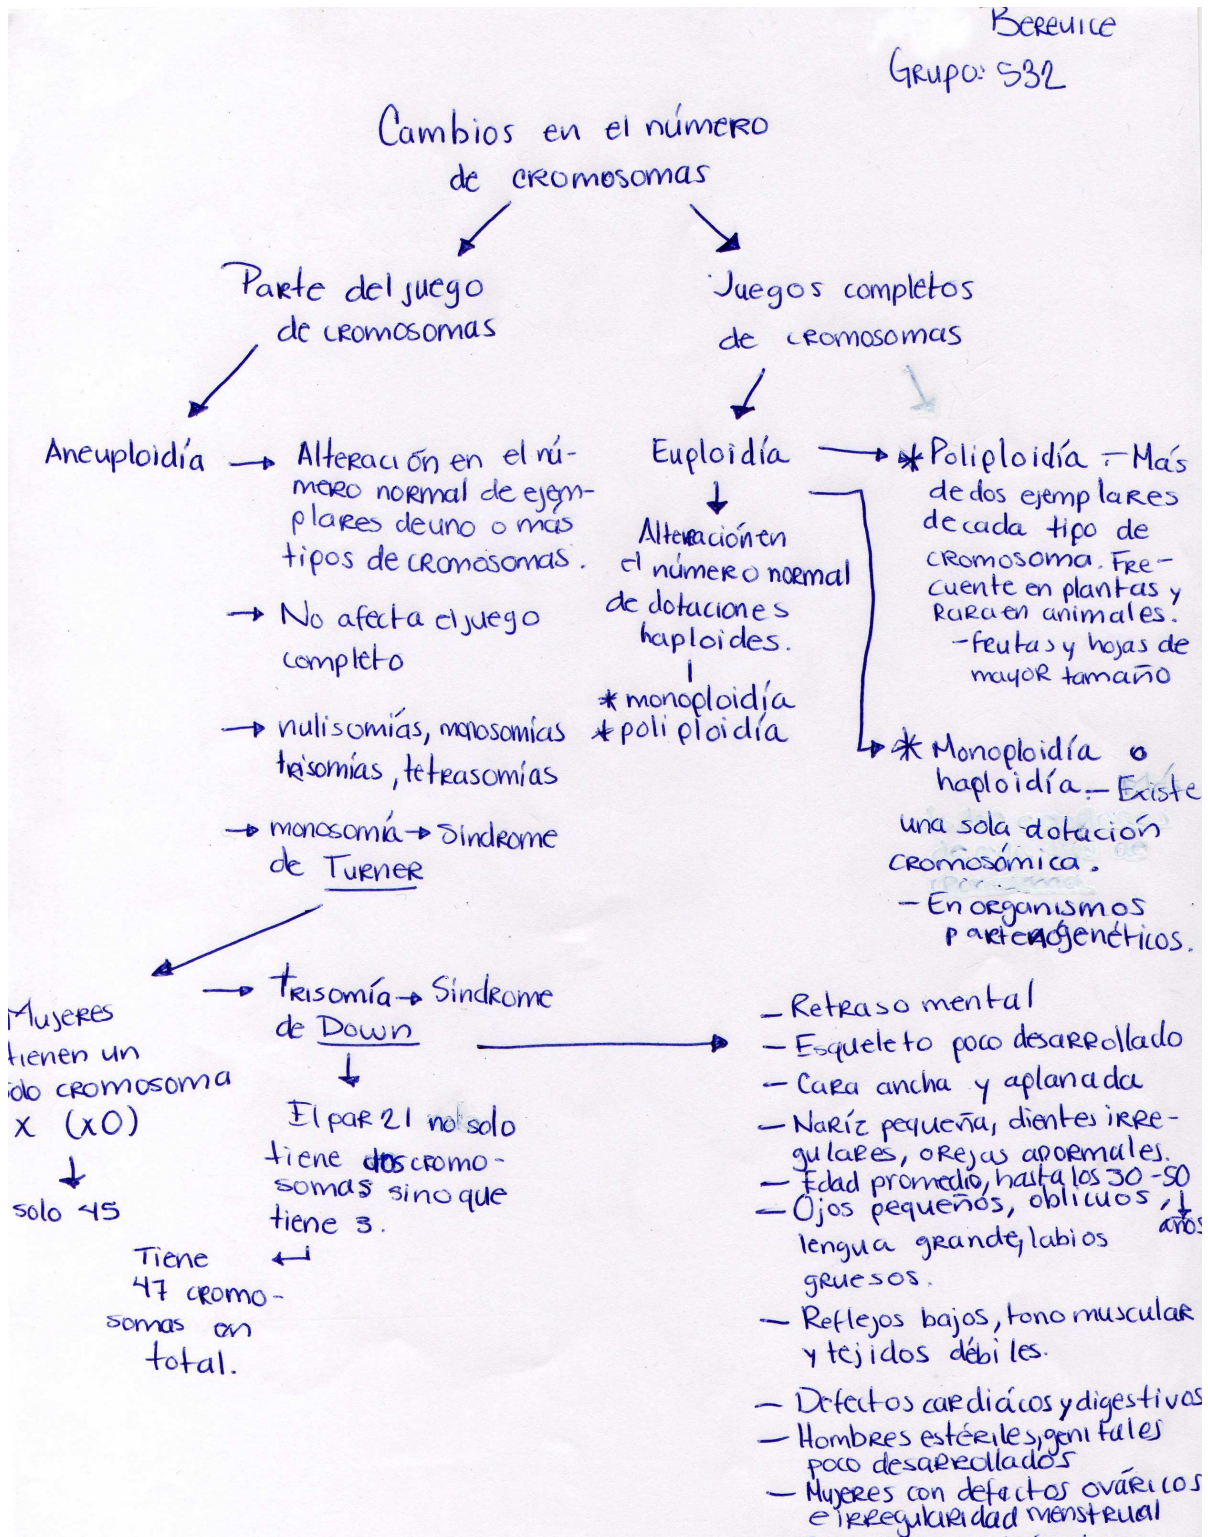 Berenice
Grupo: 532
Cambios en el número
de cromosomas
Parte del juego
de cromosomas
Juegos completos
de cromosomas
Aneuploidía
Alteración en el nú-
mero normal de ejem-
plares de uno o más
tipos de cromosomas.
No afecta el juego
completo
nulisomías, monosomías
trisomías, tetrasomías
monosomía → Síndrome
de Turner
Mujeres
tienen un
solo cromosoma
x (x0)
solo 45
trisomía → Síndrome
de Down
El par 21 no solo
tiene dos cromo-
somas sino que
tiene 3.
Tiene
47 cromo-
somas en
total.
Euploidía
Alteración en
el número normal
de dotaciones
haploides.
* monoploidía
* poliploidía
* Poliploidía - Más
de dos ejemplares
de cada tipo de
cromosoma. Fre-
cuente en plantas y
rara en animales.
- frutas y hojas de
mayor tamaño
* Monoploidía o
haploidía - Existe
una sola dotación
cromosómica.
- En organismos
partenogenéticos.
- Retraso mental
- Esqueleto poco desarrollado
- Cara ancha y aplanada
- Naríz pequeña, dientes irre-
gulares, orejas anormales.
- Edad promedio, hasta los 30-50
años
- Ojos pequeños, oblicuos,
lengua grande, labios
gruesos.
- Reflejos bajos, tono muscular
y tejidos débiles.
- Defectos cardiácos y digestivos
- Hombres estériles, genitales
poco desarrollados
- Mujeres con defectos ováricos
e irregularidad menstrual